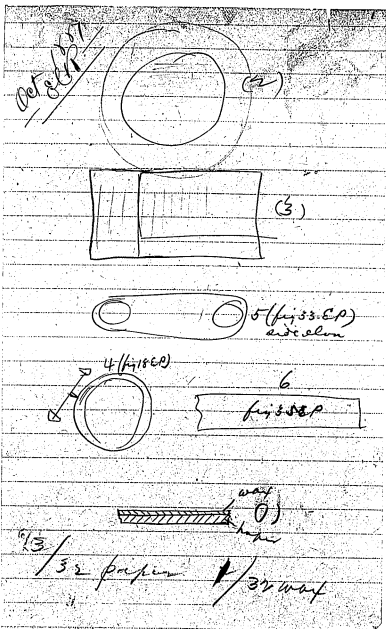 Oct 8 1887
(2)
(3)
5 (fig 33. E.P)
side elevn
4 (fig 18 E.P)
6
fig 35 E.P
wax
paper
3/32 paper 1/32 wax